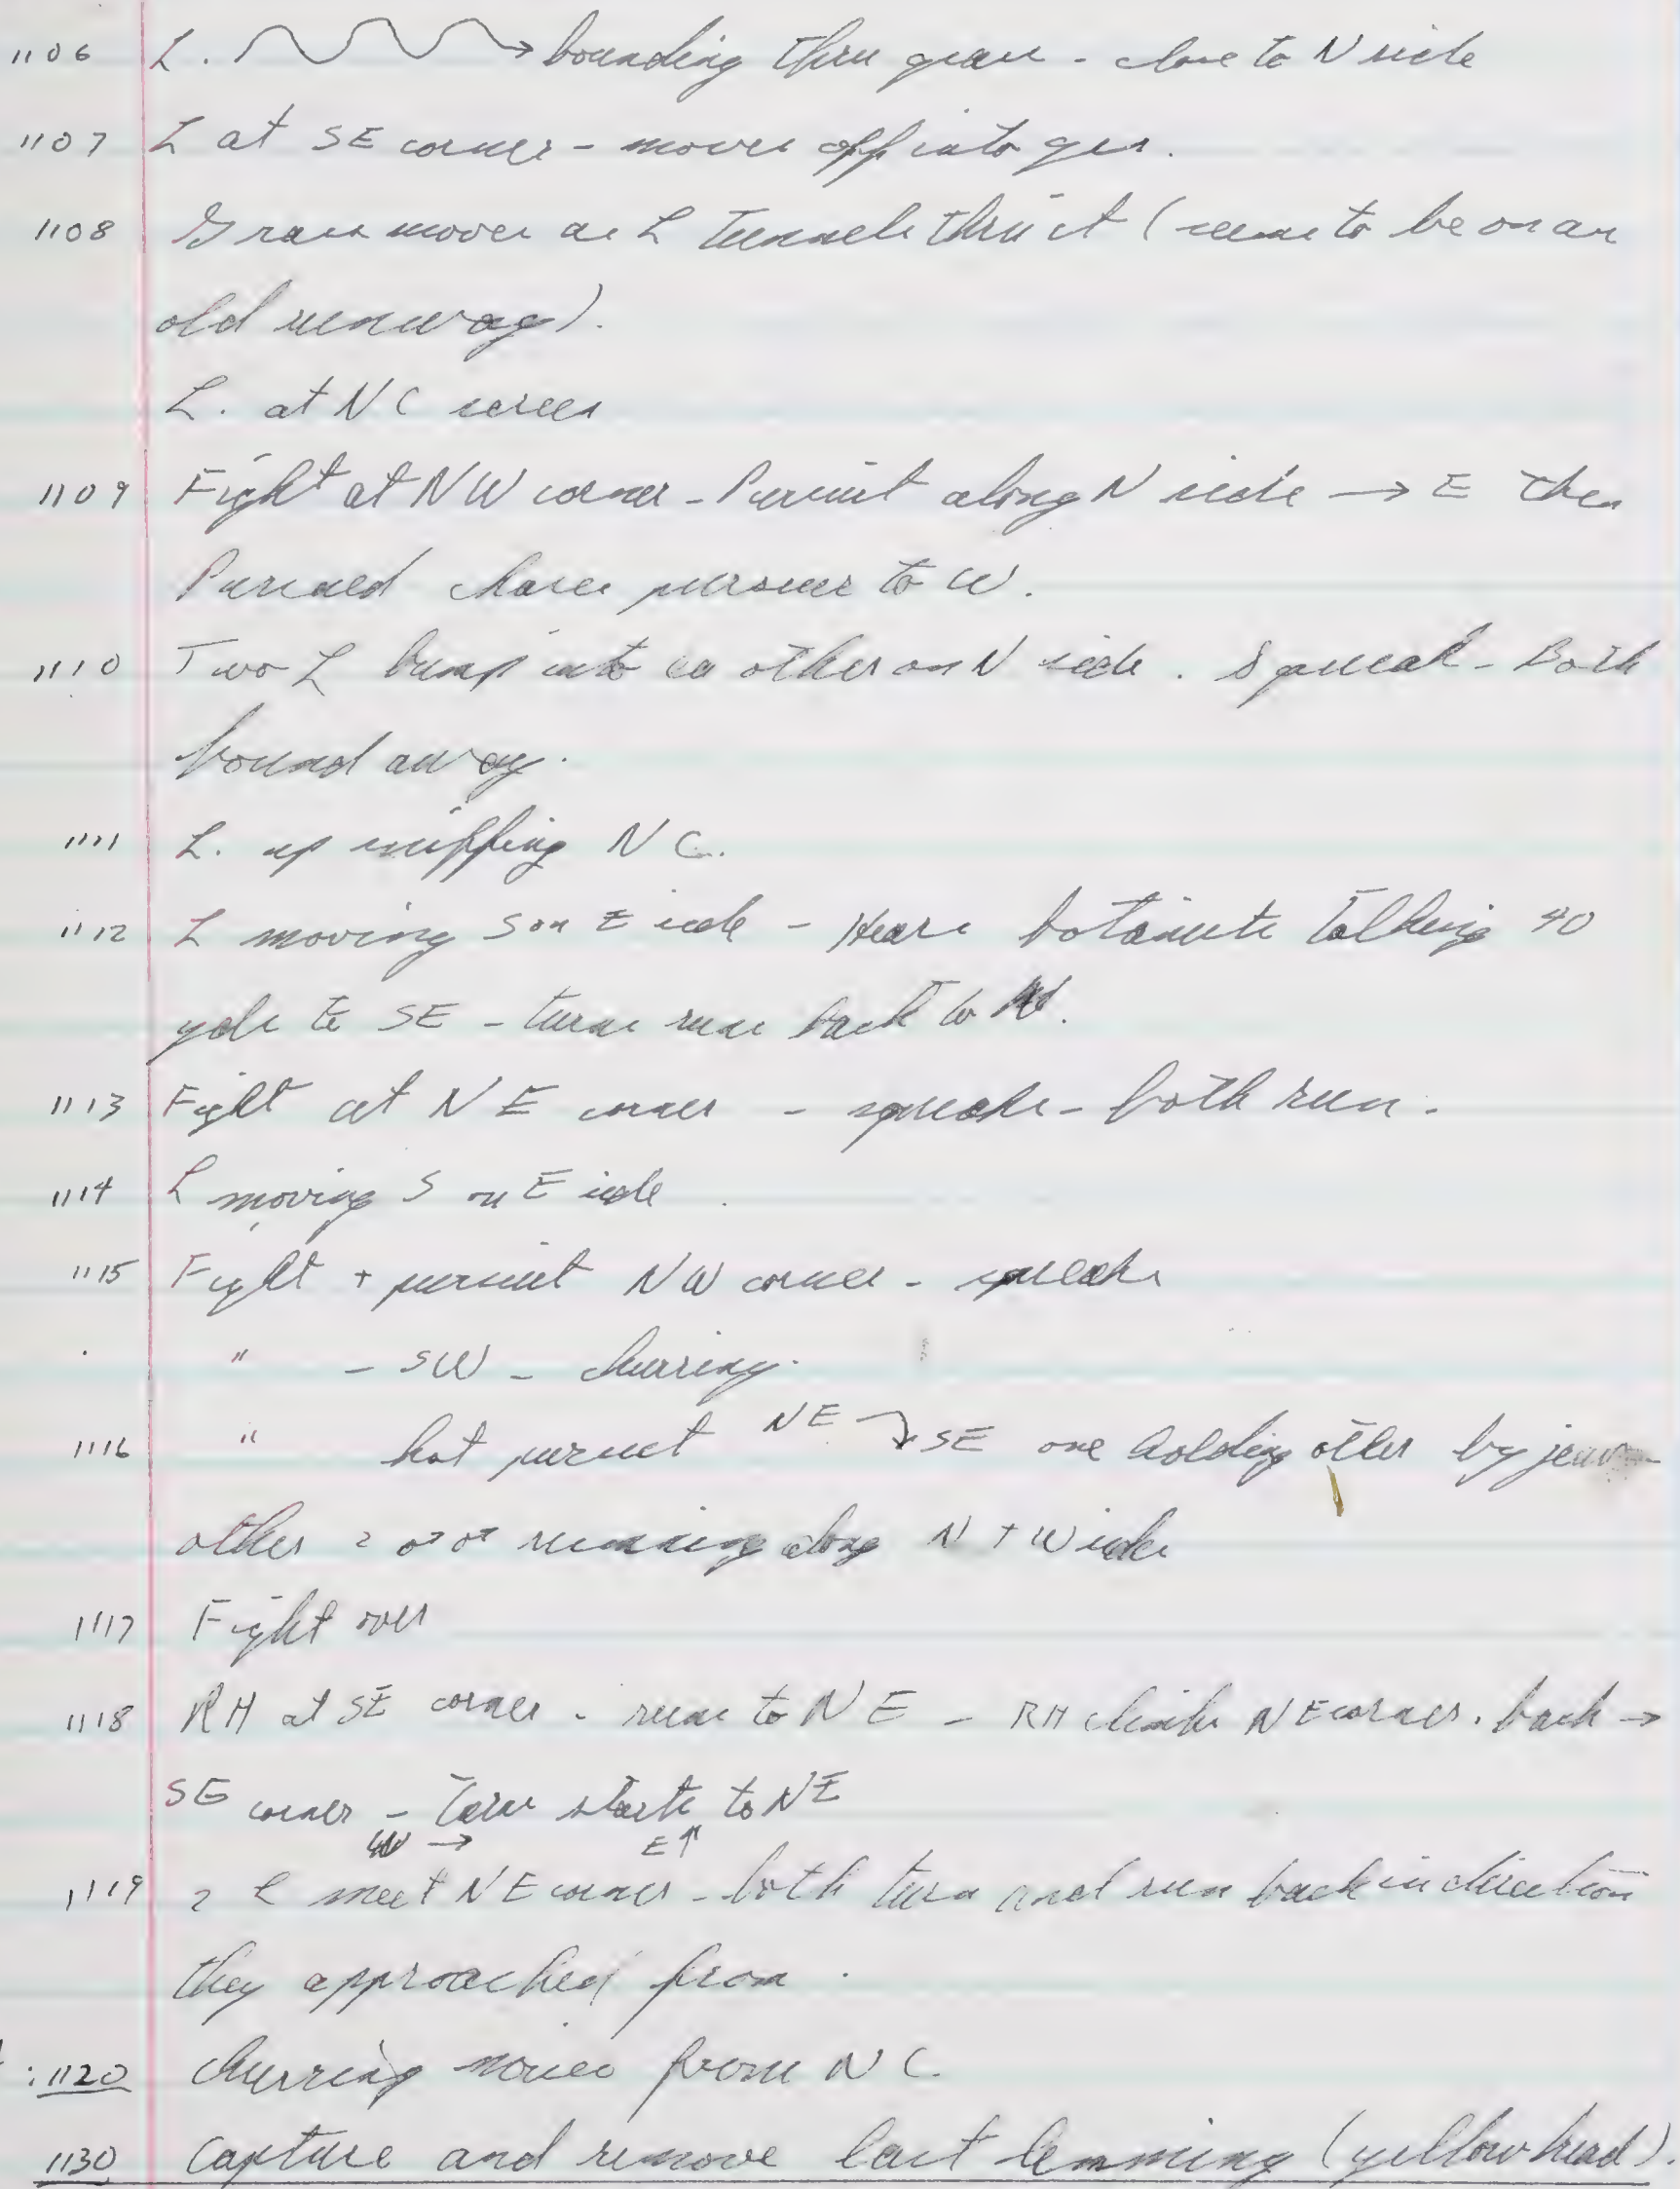 1106 L. → bounding thru grass - close to N side
1107 L at SE corner - moves off into grs.
1108 Grass moves as L tunnels thru it (seems to be on an
old runway).
L. at NC screen
1109 Fight at NW corner - Pursuit along N side → E then
Pursued chases pursuer to W.
1110 Two L bump into ea other on N side. Squeak - Both
bound away.
1111 L. up sniffing NC.
1112 L moving S on E side - Hears botanists talking 40
yds to SE - turns runs back to
1113 Fight at NE corner - squeaks - both run.
1114 L moving S on E side.
1115 Fight + pursuit NW corner - squeaks
" - SW - churring.
1116 " hot pursuit NE → SE one holding other by
other 2 ♂♂ running along N + W sides
1117 Fight over
1118 RH at SE corner - runs to NE - RH climbs NE corner. back →
SE corner - Turns starts to NE
W → E ↑
1119 2 L meet NE corner - both turn and run back in direction
they approached from.
:1120 churring noises from NC.
1130 Capture and remove last lemming (yellow head).